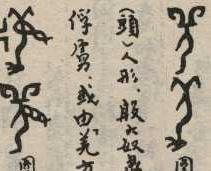 (頭)人形、殷代奴
俘虜、或由「羌方
圖
圖